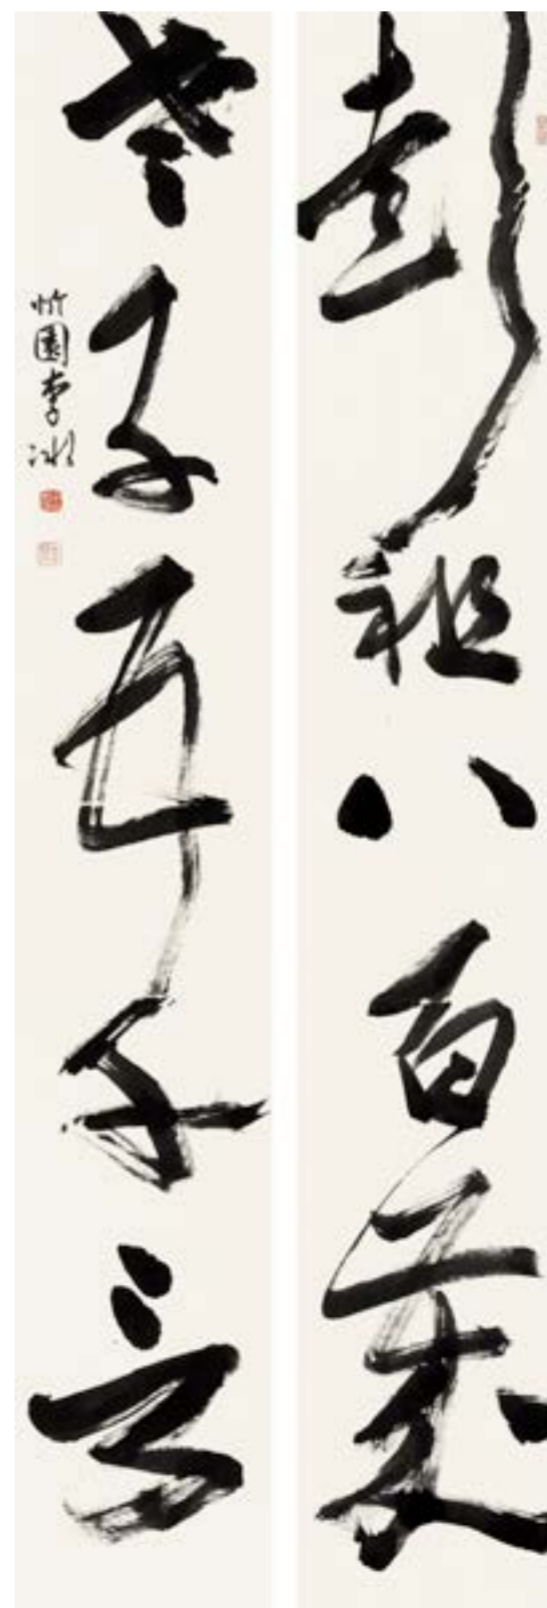 彭祖八百歲
老子五千言
忻園李冰